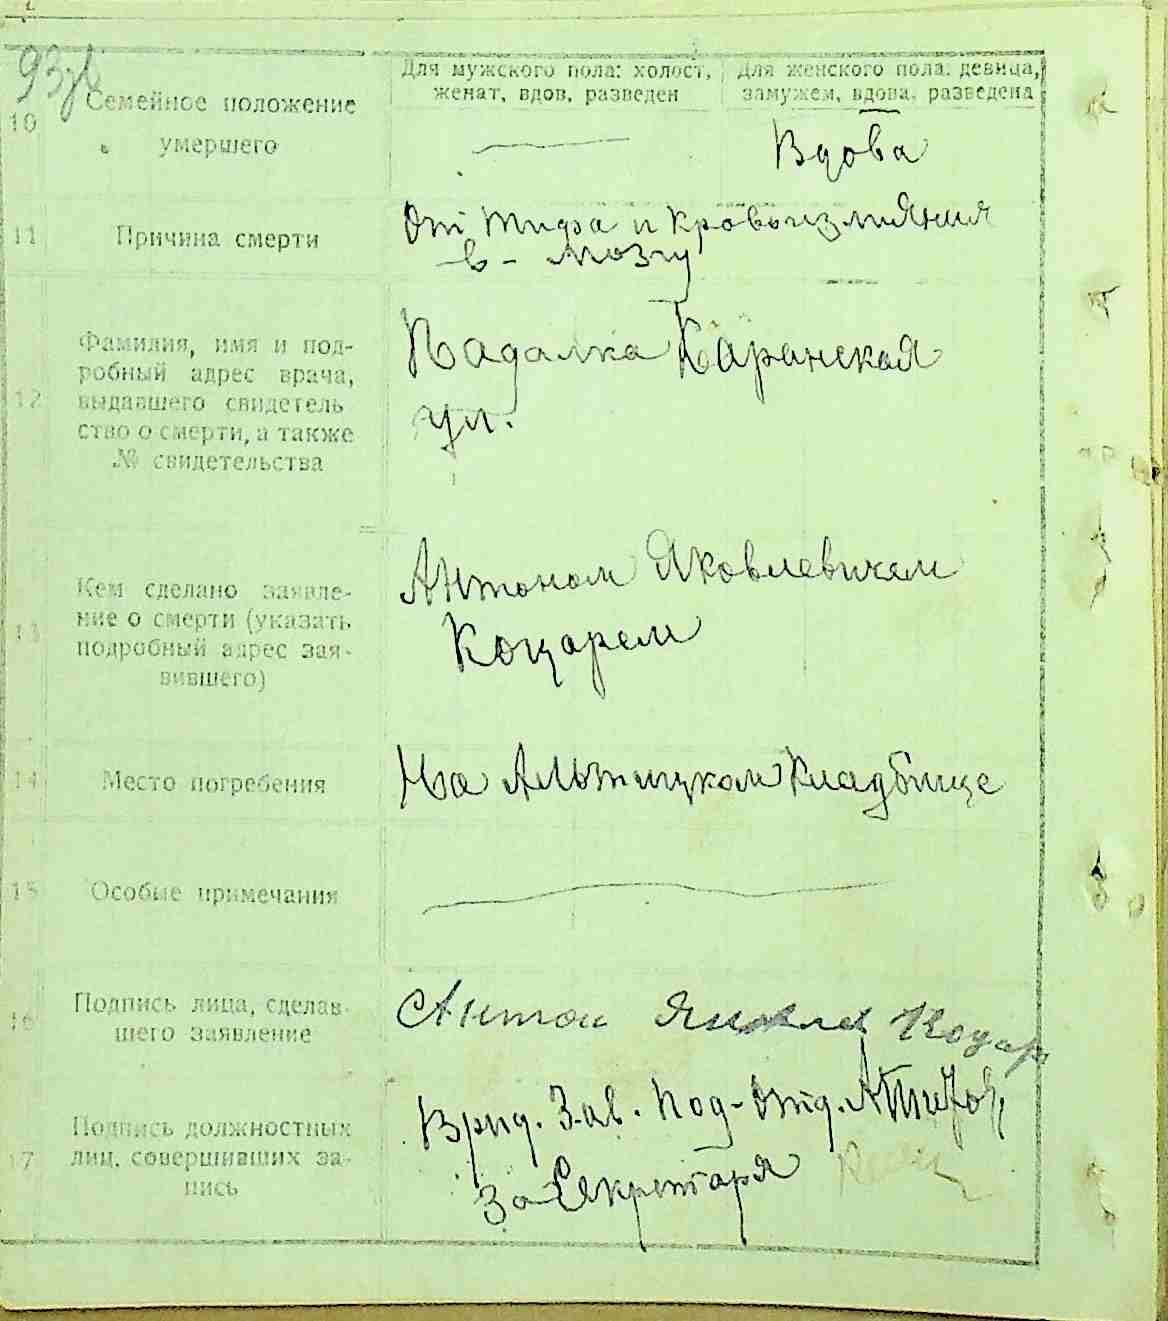 Для мужского пола: холост,
женат, вдов, разведен
Для женского пола: девица,
замужем, вдова, разведена
10
Семейное положение
умершего
Вдова
11
Причина смерти
От тифа и кровоизлияния
в - мозгу
12
Фамилия, имя и под-
робный адрес врача,
выдавшего свидетель
ство о смерти, а также
№ свидетельства
Падалка Каранская
ул.
13
Кем сделано заявле-
ние о смерти (указать
подробный адрес зая-
вившего)
Антоном Яковлевичем
Коцарем
14
Место погребения
На Альтицком кладбище
15
Особые примечания
16
Подпись лица, сделав-
шего заявление
Антон Коцар
17
Подпись должностных
лиц, совершивших за-
пись
Врид. Зав. Под-отд.
За Секретаря